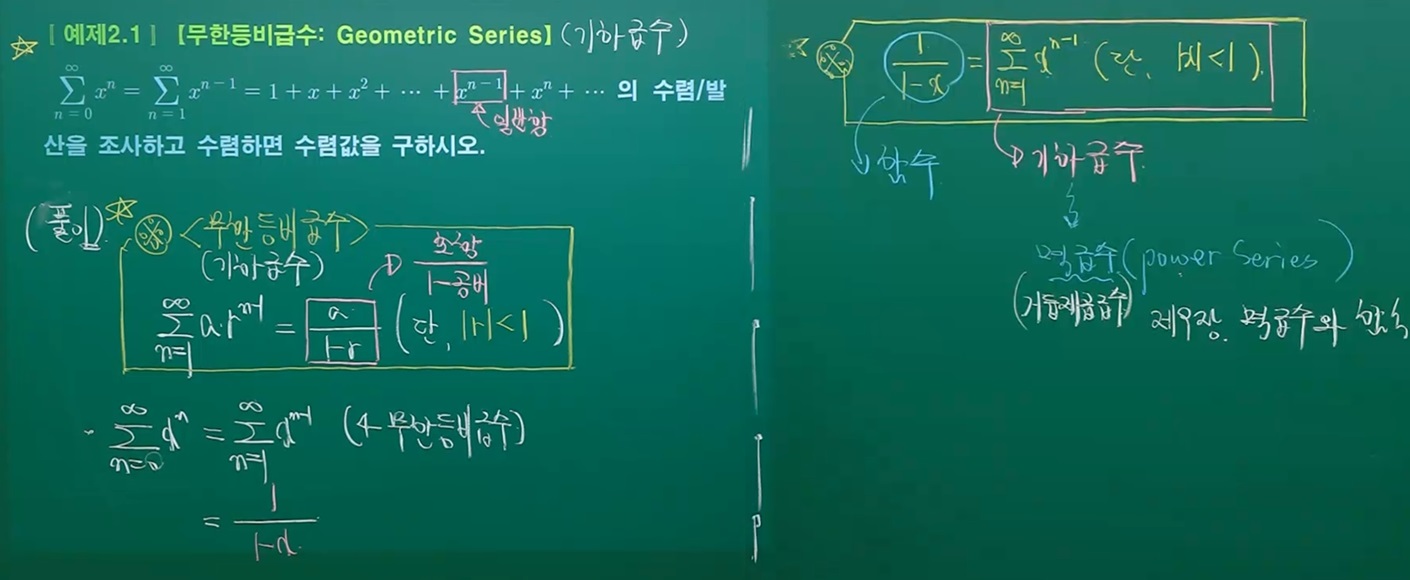 [예제2.1] [무한등비급수: Geometric Series] (기하급수)
$\sum_{n=0}^{\infty} x^n = \sum_{n=1}^{\infty} x^{n-1} = 1 + x + x^2 + \cdots + x^{n-1} + x^n + \cdots$ 의 수렴/발
일반항
산을 조사하고 수렴하면 수렴값을 구하시오.
(풀이)
<무한등비급수>
(기하급수)
$\sum_{n=1}^{\infty} a \cdot r^{n-1} = \frac{a}{1-r}$ (단, |r|<1)
$\frac{초항}{1-공비}$
$\sum_{n=0}^{\infty} x^n = \sum_{n=1}^{\infty} x^{n-1}$ (← 무한등비급수)
$= \frac{1}{1-x}$
$\frac{1}{1-x} = \sum_{n=1}^{\infty} x^{n-1}$ (단, |x|<1).
함수
기하급수
멱급수 (power Series)
(거듭제곱급수)
제4장. 멱급수와 함수